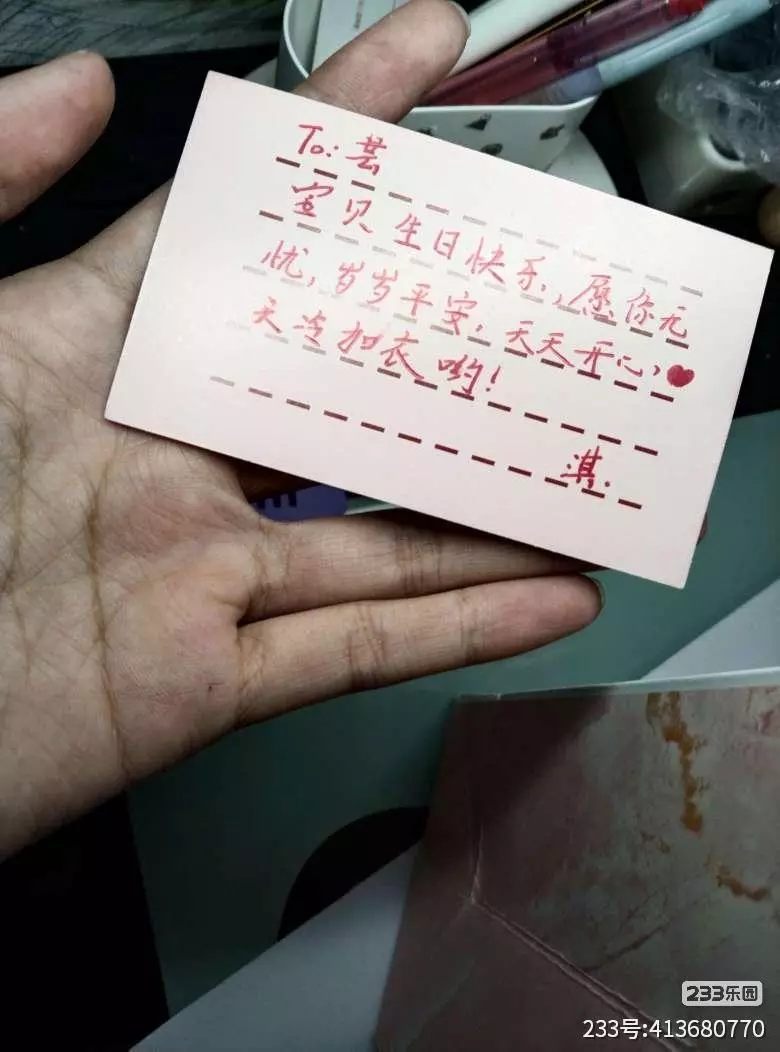 To: 芸
宝贝生日快乐，愿你无
忧，岁岁平安，天天开心，
天冷扣衣哟！
淇.
233乐园
233号:413680770